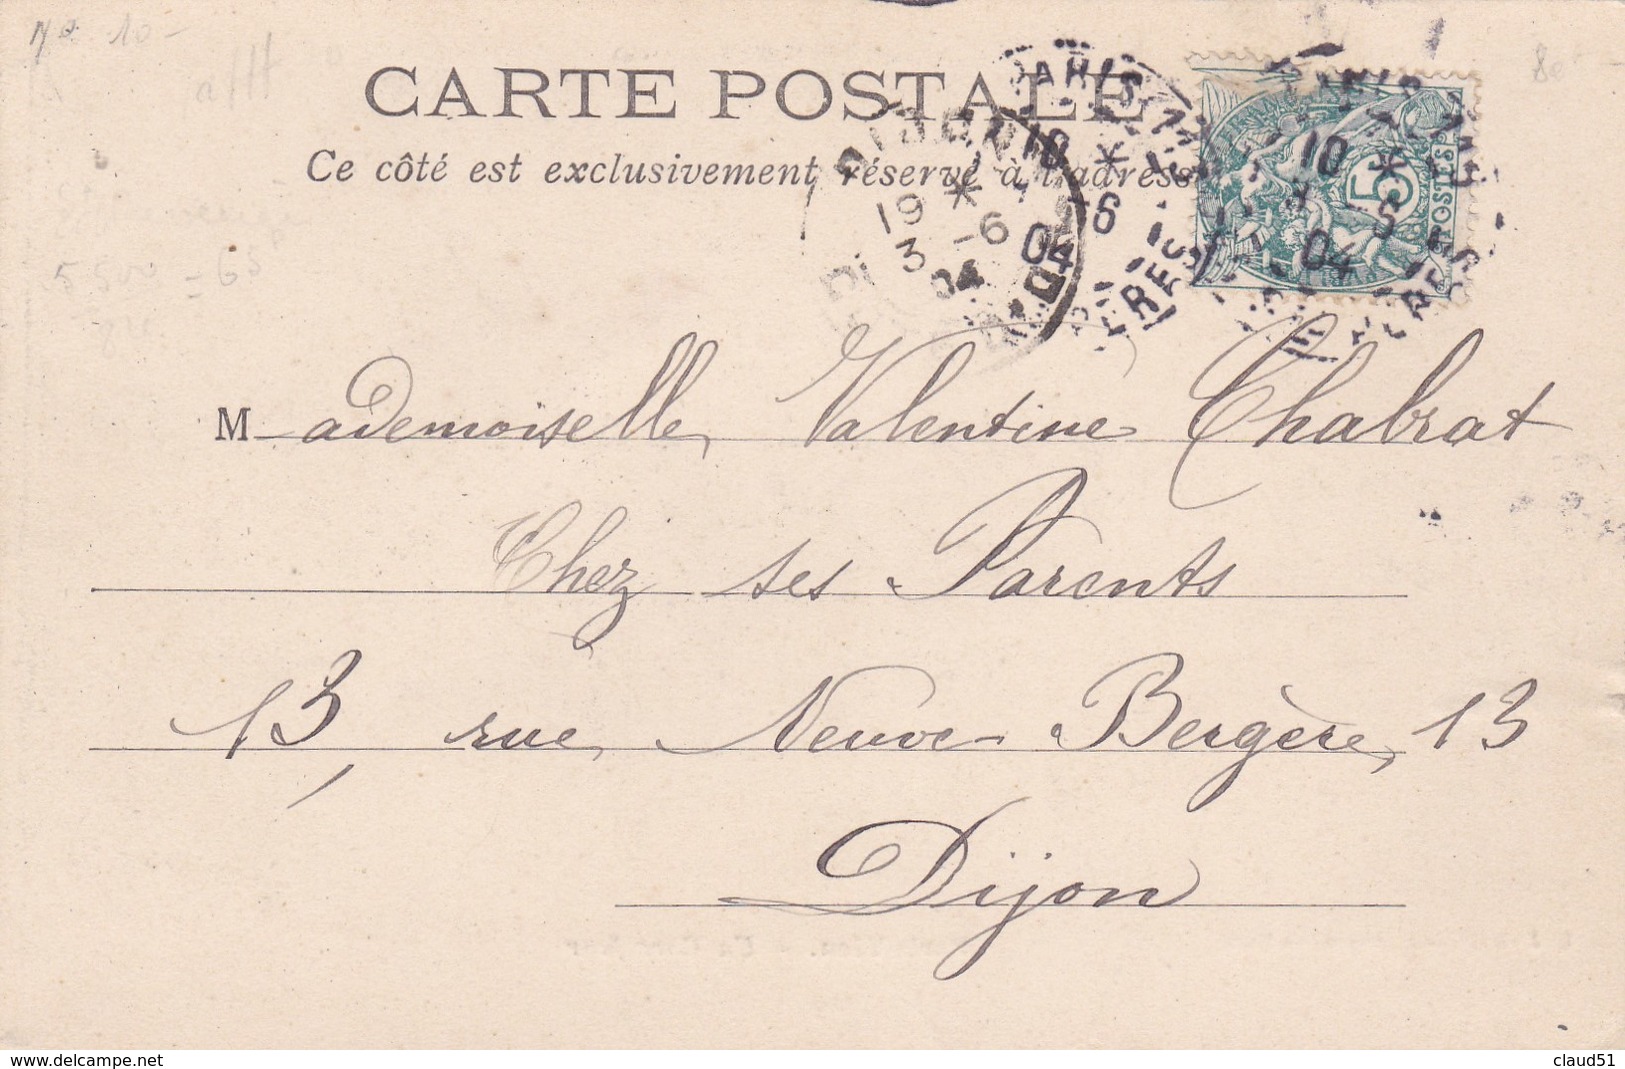 CARTE POSTALE
Ce côté est exclusivement réservé à l'adresse
DIJON
19 *
3 -6
04
PARIS
10 *
6
04
10 *
5
POSTES
04
Mademoiselle Valentine Chabrat
Chez ses Parents
13, rue Neuve-Bergère, 13
Dijon
www.delcampe.net
claud51